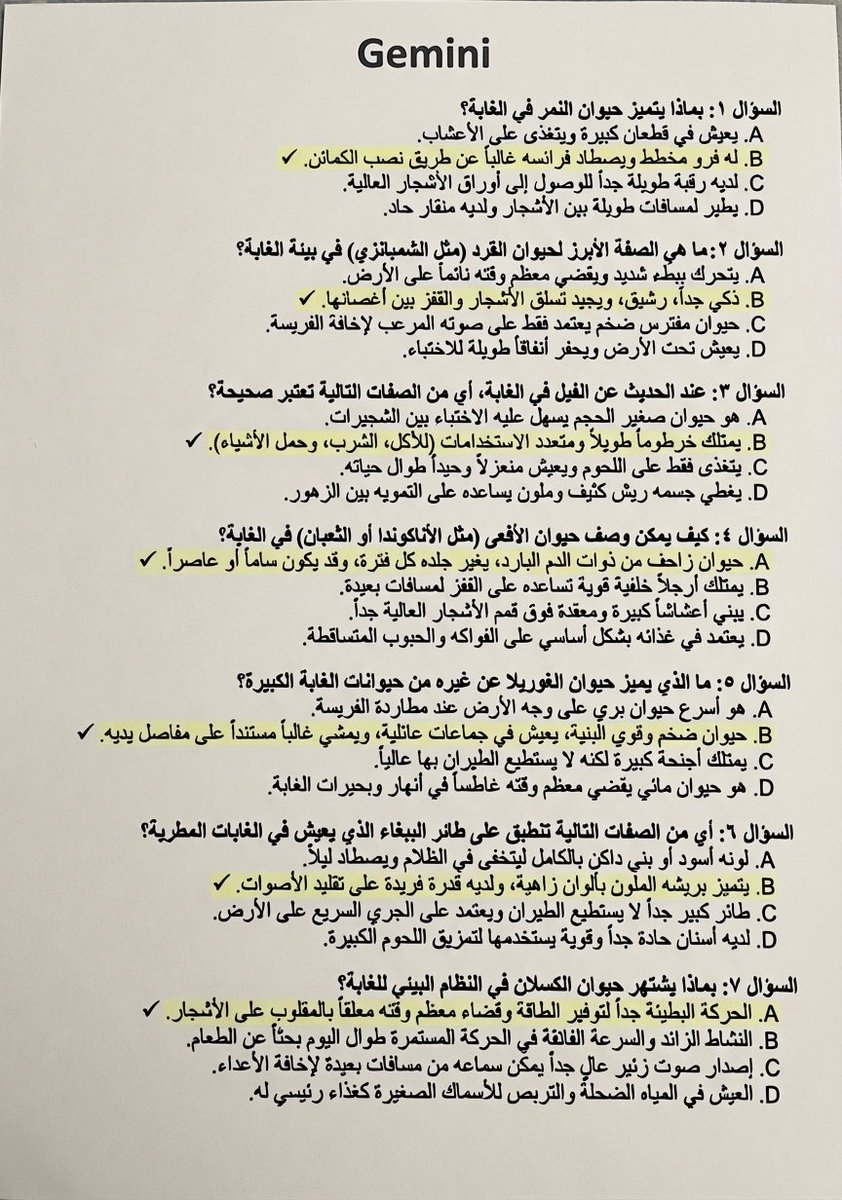 Gemini
السؤال ١: بماذا يتميز حيوان النمر في الغابة؟
A. يعيش في قطعان كبيرة ويتغذى على الأعشاب.
B. له فرو مخطط ويصطاد فرائسه غالباً عن طريق نصب الكمائن. ✓
C. لديه رقبة طويلة جداً للوصول إلى أوراق الأشجار العالية.
D. يطير لمسافات طويلة بين الأشجار ولديه منقار حاد.
السؤال ٢: ما هي الصفة الأبرز لحيوان القرد (مثل الشمبانزي) في بيئة الغابة؟
A. يتحرك ببطء شديد ويقضي معظم وقته نائماً على الأرض.
B. ذكي جداً، رشيق، ويجيد تسلق الأشجار والقفز بين أغصانها. ✓
C. حيوان مفترس ضخم يعتمد فقط على صوته المرعب لإخافة الفريسة.
D. يعيش تحت الأرض ويحفر أنفاقاً طويلة للاختباء.
السؤال ٣: عند الحديث عن الفيل في الغابة، أي من الصفات التالية تعتبر صحيحة؟
A. هو حيوان صغير الحجم يسهل عليه الاختباء بين الشجيرات.
B. يمتلك خرطوماً طويلاً ومتعدد الاستخدامات (للأكل، الشرب، وحمل الأشياء). ✓
C. يتغذى فقط على اللحوم ويعيش منعزلاً وحيداً طوال حياته.
D. يغطي جسمه ريش كثيف وملون يساعده على التمويه بين الزهور.
السؤال ٤: كيف يمكن وصف حيوان الأفعى (مثل الأناكوندا أو الثعبان) في الغابة؟
A. حيوان زاحف من ذوات الدم البارد، يغير جلده كل فترة، وقد يكون ساماً أو عاصراً. ✓
B. يمتلك أرجلاً خلفية قوية تساعده على القفز لمسافات بعيدة.
C. يبني أعشاشاً كبيرة ومعقدة فوق قمم الأشجار العالية جداً.
D. يعتمد في غذائه بشكل أساسي على الفواكه والحبوب المتساقطة.
السؤال ٥: ما الذي يميز حيوان الغوريلا عن غيره من حيوانات الغابة الكبيرة؟
A. هو أسرع حيوان بري على وجه الأرض عند مطاردة الفريسة.
B. حيوان ضخم وقوي البنية، يعيش في جماعات عائلية، ويمشي غالباً مستنداً على مفاصل يديه. ✓
C. يمتلك أجنحة كبيرة لكنه لا يستطيع الطيران بها عالياً.
D. هو حيوان مائي يقضي معظم وقته غاطساً في أنهار وبحيرات الغابة.
السؤال ٦: أي من الصفات التالية تنطبق على طائر الببغاء الذي يعيش في الغابات المطرية؟
A. لونه أسود أو بني داكن بالكامل ليتخفى في الظلام ويصطاد ليلاً.
B. يتميز بريشه الملون بألوان زاهية، ولديه قدرة فريدة على تقليد الأصوات. ✓
C. طائر كبير جداً لا يستطيع الطيران ويعتمد على الجري السريع على الأرض.
D. لديه أسنان حادة جداً وقوية يستخدمها لتمزيق اللحوم الكبيرة.
السؤال ٧: بماذا يشتهر حيوان الكسلان في النظام البيئي للغابة؟
A. الحركة البطيئة جداً لتوفير الطاقة وقضاء معظم وقته معلقاً بالمقلوب على الأشجار. ✓
B. النشاط الزائد والسرعة الفائقة في الحركة المستمرة طوال اليوم بحثاً عن الطعام.
C. إصدار صوت زئير عالٍ جداً يمكن سماعه من مسافات بعيدة لإخافة الأعداء.
D. العيش في المياه الضحلة والتربص للأسماك الصغيرة كغذاء رئيسي له.